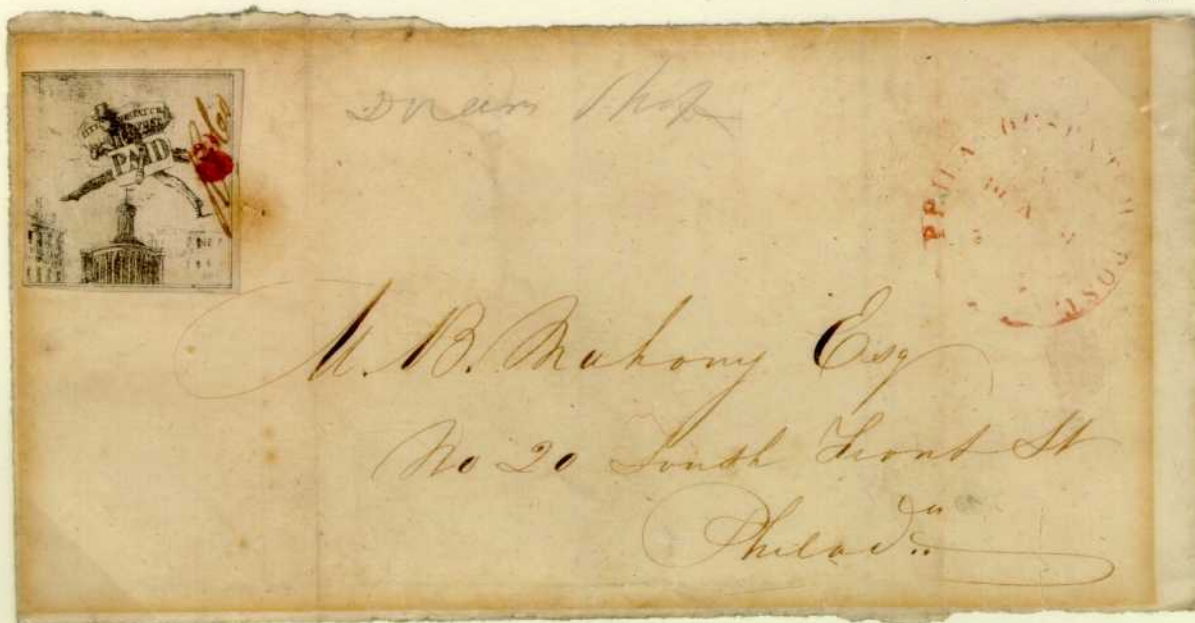 CITY DESPATCH
POST
PAID
PHILA DESPATCH POST
M. B. Mahony Esq
No 20 South Front St
Philada